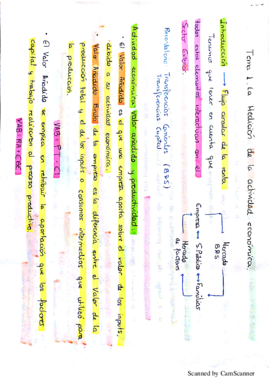 Tema 1: La Medición de la actividad económica.
Introducción → Flujo circular de la renta
Tenemos que tener en cuenta que
todos estos elementos interactúan con el
Sector Exterior.
Mercado
BBS
Empresa ↔ S. Público ↔ Familias
Mercado
de factores
Recordatorio: Transferencias Corrientes (BBS)
Transferencias Capital
Actividad económica: Valor añadido y productividad
• El Valor Añadido es el que una empresa aporta sobre el valor de los inputs
debido a su actividad económica.
• Valor Añadido Bruto de la empresa es la diferencia entre el Valor de la
producción total y el de los inputs o consumos intermedios que utilizó para
la producción.
VAB = PT - CI
• El Valor Añadido se emplea en retribuir la aportación que los factores
capital y trabajo realizaron al proceso productivo.
VAB = RA + EBE
Scanned by CamScanner